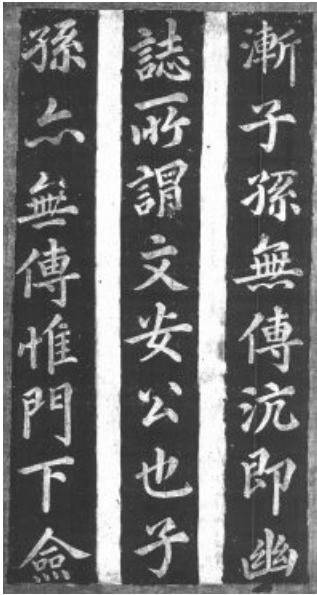 漸子孫無傳沆即幽
誌所謂文安公也子
孫亦無傳惟門下僉